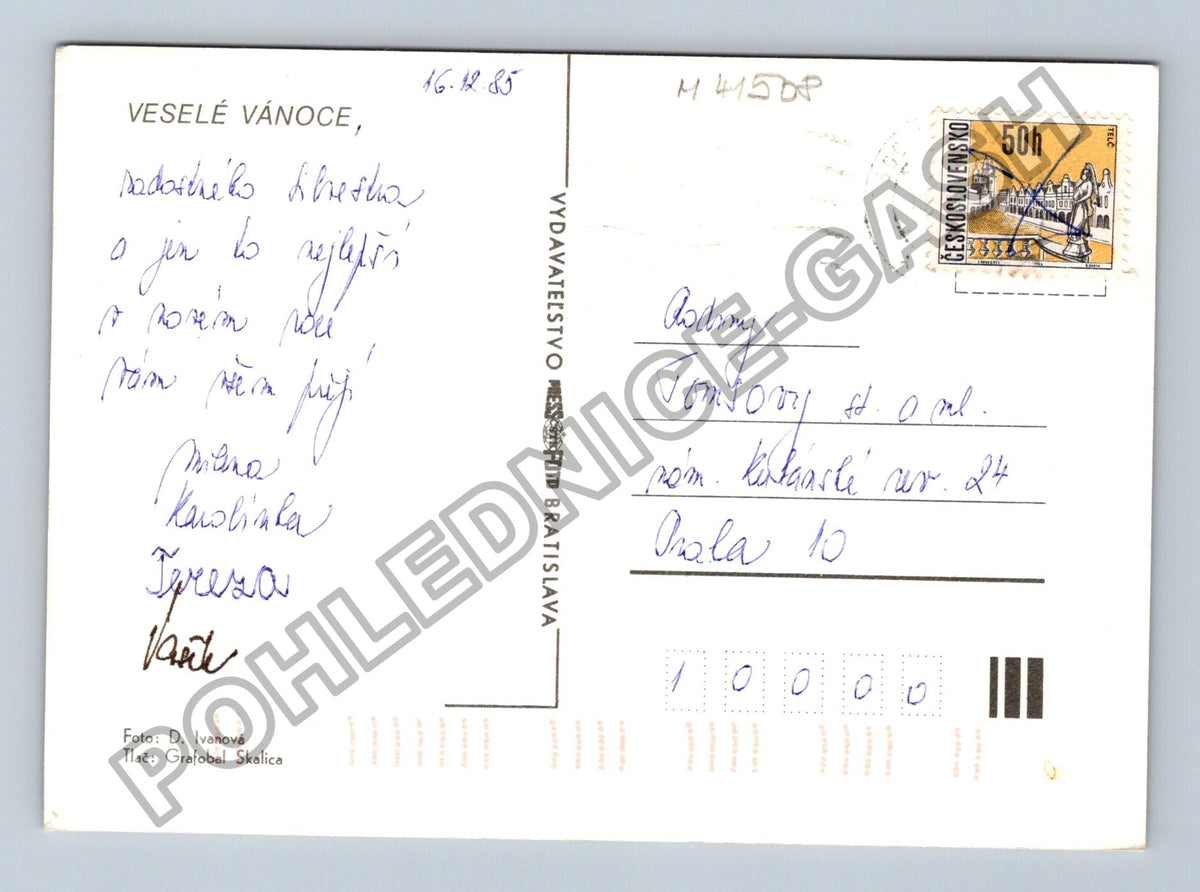 16.12.85
VESELÉ VÁNOCE,
radostného Silvestra
a jen to nejlepší
v novém roce
Vám všem přejí
Milena
Karolínka
Tereza
Vašík
Foto: D. Ivanová
Tlač: Grafobal Skalica
VYDAVATEĽSTVO PRESSFOTO BRATISLAVA
M 41508
ČESKOSLOVENSKO
50h
TELČ
Rodiny
Tomšovy st. a ml.
nám. Kubánské rev. 24
Praha 10
1 0 0 0 0
POHLEDNICE-GASH